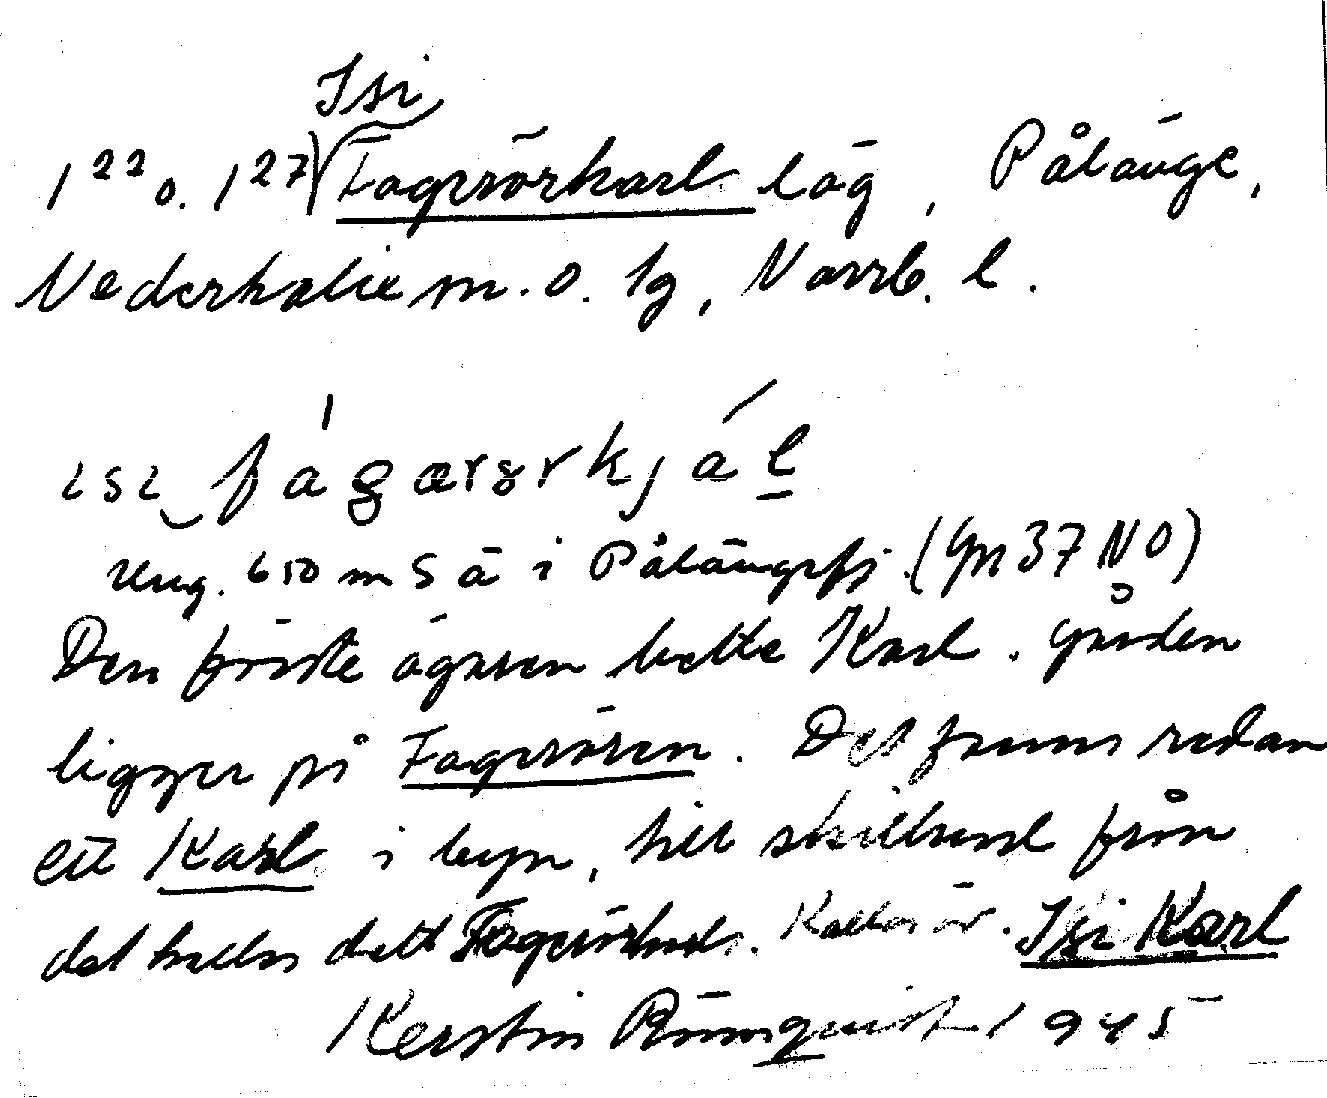 Isi
1²² o. 1²⁷) Fagerörkarl läg, Pålänge,
Nederkalix m. o. lg, Norrb. l.
isi fágærsrkjál
Ung. 650 m S ä i Pålängefj. (Gm 37 NO)
Den förste ägaren hette Karl. Gården
ligger på Fagerören. Det fanns redan
ett Karl i byn, till skillnad från
det kallas detta Fagerörkarl. Kallas äv. Isi Karl
Kerstin Rönnquist 1945